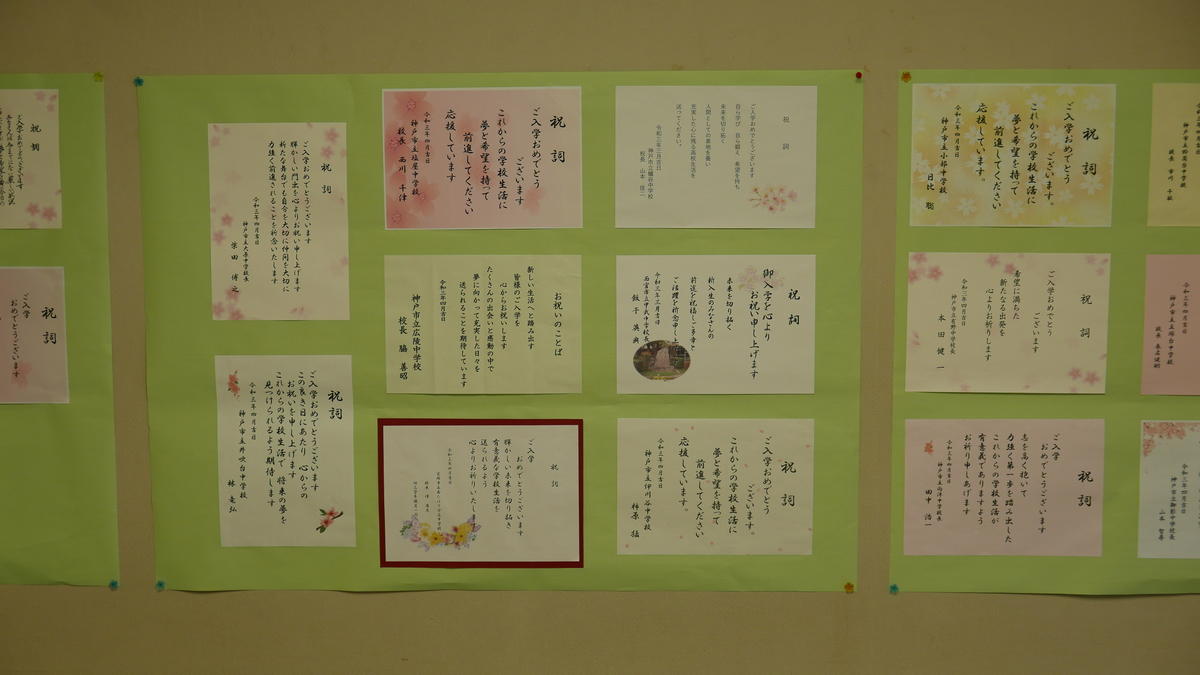 祝詞
ご入学おめでとうございます
祝詞
ご入学
おめでとうございます
祝詞
ご入学おめでとうございます
輝かしい門出を心よりお祝い申し上げます
新たな舞台でも自分を大切に仲間を大切に
力強く前進されることを祈念いたします
令和三年四月吉日
神戸市立大原中学校長
柴田 博之
祝詞
ご入学おめでとうございます
この良き日にあたり 心からの
お祝いを申し上げます
これからの学校生活で 将来の夢を
見つけられるよう期待します
令和三年四月吉日
神戸市立井吹台中学校
林 竜弘
祝詞
ご入学おめでとう
ございます
これからの学校生活に
夢と希望を持って
前進してください
応援しています
令和三年四月吉日
神戸市立塩屋中学校
校長 西川 千津
お祝いのことば
新しい生活へと踏み出す
皆様のご入学を
心からお祝いします
たくさんの出会いと感動の中で
夢に向かって充実した日々を
送られることを期待しています
令和三年四月吉日
神戸市立広陵中学校
校長 脇 善昭
祝詞
ご入学
おめでとうございます
輝かしい未来を切り拓き
有意義な学校生活を
送られるよう
心よりお祈りいたし
祝詞
ご入学おめでとうございます
自ら学び 自ら鍛え 希望を持ち
未来を切り拓く
人間としての素地を養い
充実した心に残る高校生活を
送ってください。
令和三年三月吉日
神戸市立櫨谷中学校
校長 山本 信二
祝詞
御入学を心より
お祝い申し上げます
未来を切り拓く
新入生のみなさんの
前途を祝福しご多幸と
ご活躍を祈念申し上
令和三年四月吉日
飯干 英典
祝詞
ご入学おめでとう
ございます。
これからの学校生活に
夢と希望を持って
前進してください
応援しています。
令和三年四月吉日
神戸市立伊川谷中学校
柿原 猛
祝詞
ご入学おめでとう
ございます。
これからの学校生活に
夢と希望を持って
前進してください
応援しています。
令和三年四月吉日
神戸市立小部中学校
日比 聡
祝詞
ご入学おめでとう
ございます
希望に満ちた
新たなる出発を
心よりお祈りします
令和三年四月吉日
神戸市立有野中学校長
本田 健一
祝詞
ご入学
おめでとうございます
志を高く抱いて
力強く第一歩を踏み出した
これからの学校生活が
有意義でありますよう
お祈り申しあげます
令和三年四月吉日
田中 浩一
令和三年四月吉日
令和三年四月吉日
令和三年四月吉日
神戸市立御影中学校長
山本 智善